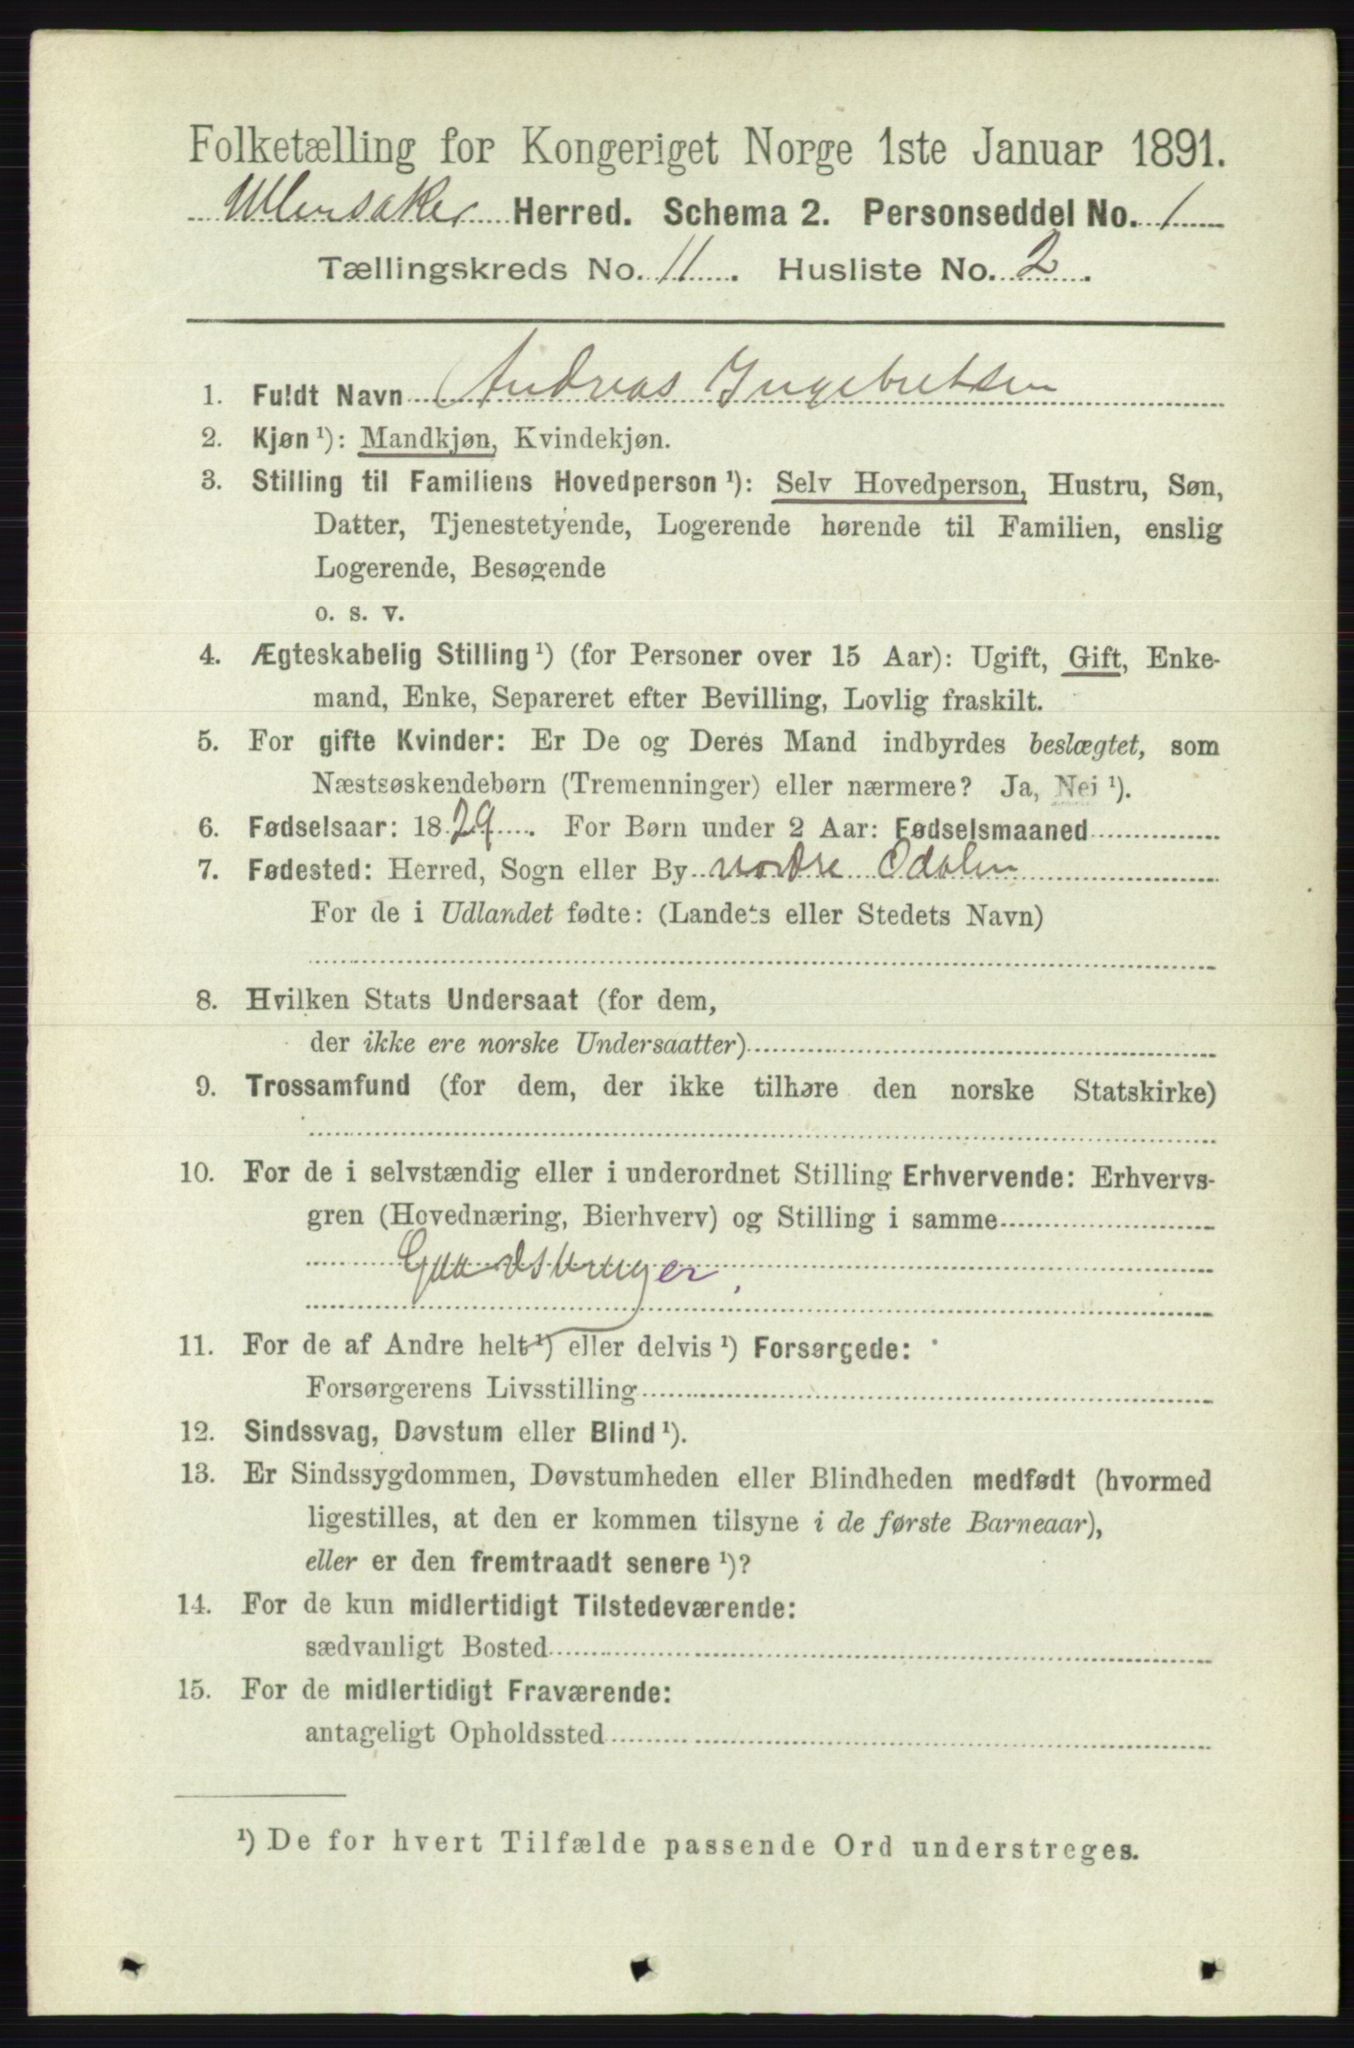 Folketælling for Kongeriget Norge 1ste Januar 1891.
Ullensaker Herred. Schema 2. Personseddel No. 1
Tællingskreds No. 11. Husliste No. 2.
1. Fuldt Navn Andreas Ingebretsen
2. Kjøn ¹): Mandkjøn, Kvindekjøn.
3. Stilling til Familiens Hovedperson ¹): Selv Hovedperson, Hustru, Søn,
Datter, Tjenestetyende, Logerende hørende til Familien, enslig
Logerende, Besøgende
o. s. v.
4. Ægteskabelig Stilling ¹) (for Personer over 15 Aar): Ugift, Gift, Enke-
mand, Enke, Separeret efter Bevilling, Lovlig fraskilt.
5. For gifte Kvinder: Er De og Deres Mand indbyrdes beslægtet, som
Næstsøskendebørn (Tremenninger) eller nærmere? Ja, Nei ¹).
6. Fødselsaar: 1829. For Børn under 2 Aar: Fødselsmaaned
7. Fødested: Herred, Sogn eller By nordre Odalen
For de i Udlandet fødte: (Landets eller Stedets Navn)
8. Hvilken Stats Undersaat (for dem,
der ikke ere norske Undersaatter)
9. Trossamfund (for dem, der ikke tilhøre den norske Statskirke)
10. For de i selvstændig eller i underordnet Stilling Erhvervende: Erhvervs-
gren (Hovednæring, Bierhverv) og Stilling i samme
Gaardsbruger.
11. For de af Andre helt ¹) eller delvis ¹) Forsørgede:
Forsørgerens Livsstilling
12. Sindssvag, Døvstum eller Blind ¹).
13. Er Sindssygdommen, Døvstumheden eller Blindheden medfødt (hvormed
ligestilles, at den er kommen tilsyne i de første Barneaar),
eller er den fremtraadt senere ¹)?
14. For de kun midlertidigt Tilstedeværende:
sædvanligt Bosted
15. For de midlertidigt Fraværende:
antageligt Opholdssted
¹) De for hvert Tilfælde passende Ord understreges.